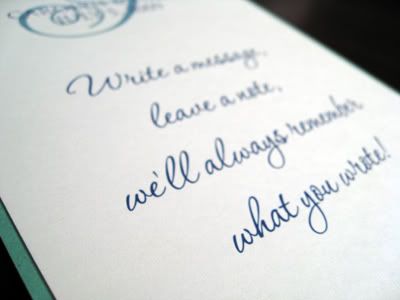 Write a message,
leave a note,
we'll always remember
what you wrote!